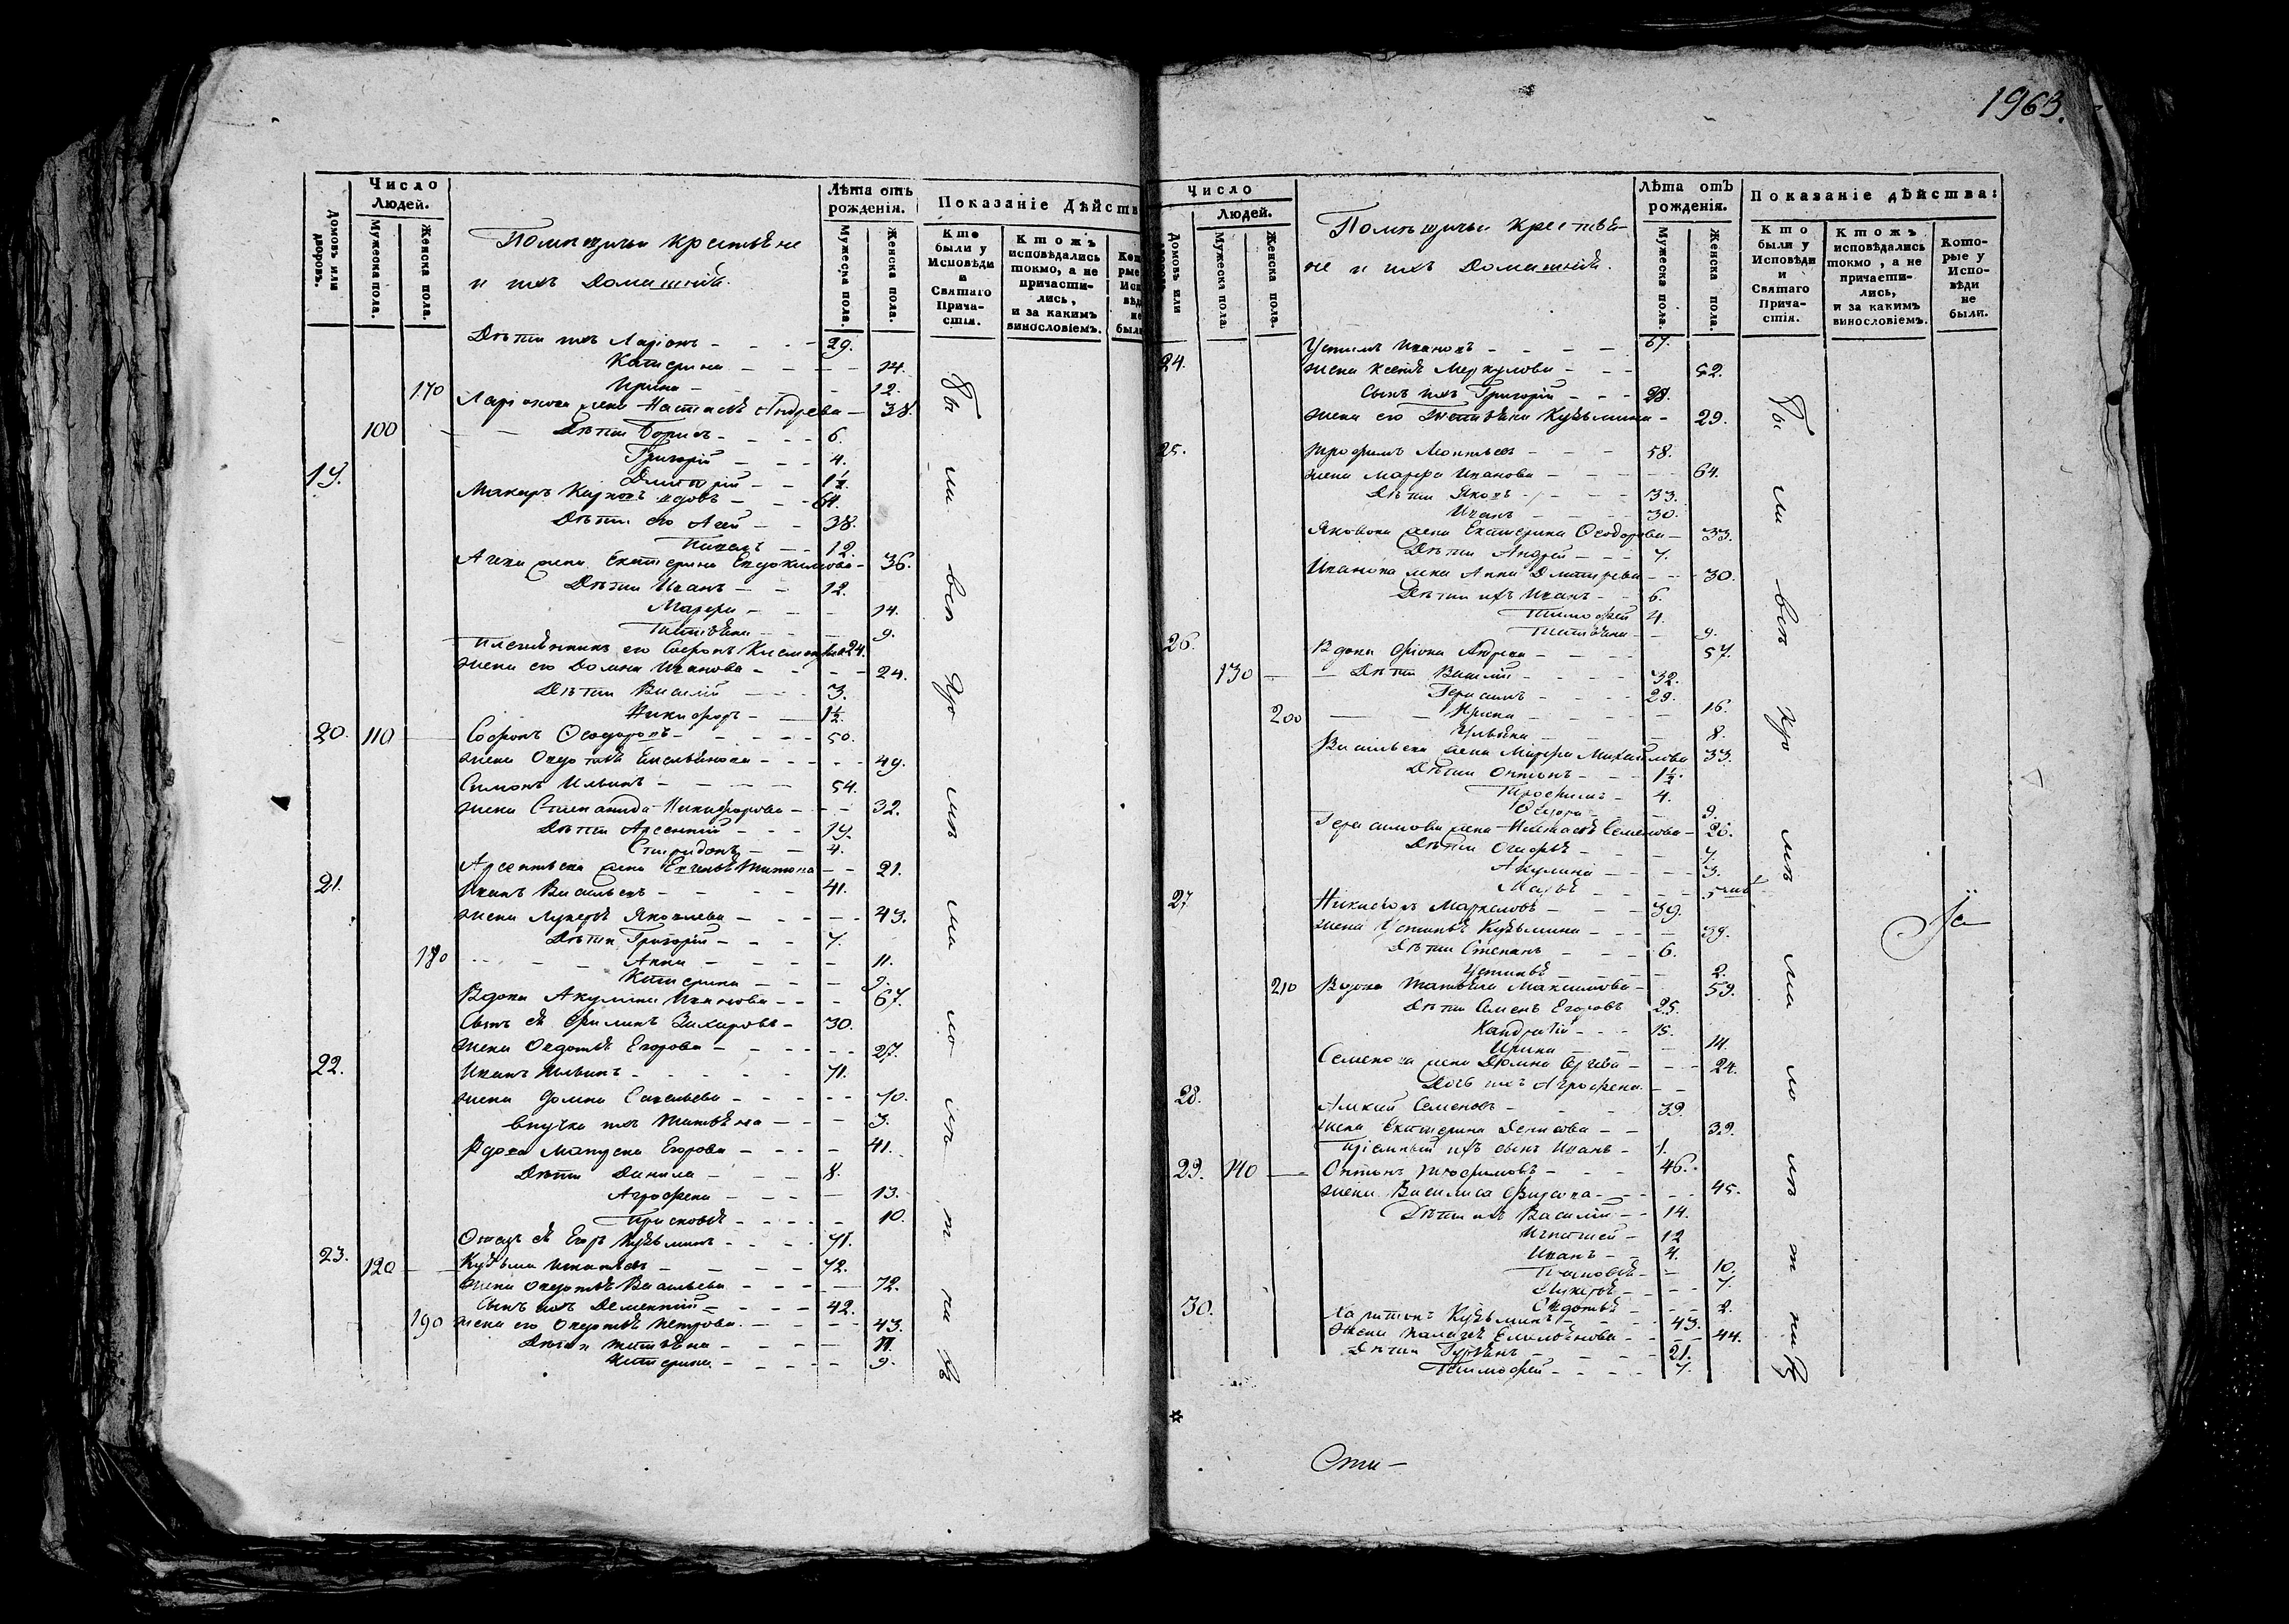 1963.
Число
Людей.
Домовъ или дворовъ.
Мужеска пола.
Женска пола.
Помѣщичьи крестьяне
и ихъ домашніе.
Лѣта отъ рожденія.
Мужеска пола.
Женска пола.
Показаніе дѣйств
Кто были у Исповѣди и Святаго Причастія.
Ктожъ исповѣдались токмо, а не причастились, и за какимъ винословіемъ.
Дѣти ихъ Ларіонъ - 29.
Катерина - 14.
170 Ирина - 12.
Ларіонова жена Настасья Андреева - 38.
100 Дѣти Борисъ - 6.
Григорій - 4.
Дмитрій - 1½.
19. Макаръ Карповъ вдовъ - 61.
Дѣти его Агей - 38.
12.
жена Екатерина Евдокимова - 36.
Дѣти Иванъ - 12.
Марфа - 14.
Татьяна - 9.
Племянникъ его Софронъ 24.
жена его Домна Иванова - 24.
Дѣти Василій - 3.
Никифоръ - 1½.
20. 110 Софронъ Ѳеодоровъ - 50.
жена Авдотья Емельянова - 49.
Симонъ Ильинъ - 54.
жена Степанида Никифорова - 32.
Дѣти Арсентій - 19.
Спиридонъ - 4.
Арсентьева жена Титова - 21.
21. Иванъ Васильевъ - 41.
жена Лукерья Яковлева - 43.
Дѣти Григорій - 7.
180 Анна - 11.
Катерина - 2.
Вдова Акулина Иванова - 67.
Сынъ ея Филипъ Захаровъ - 30.
жена Авдотья Егорова - 27.
22. Иванъ Ильинъ - 71.
жена Домна Савельева - 70.
внучка ихъ Татьяна - 3.
Вдова Егорова - 41.
Дѣти Данила - 8.
Агрофена - 13.
Прасковья - 10.
Отецъ ея Егоръ Кузьминъ - 71.
23. 120 Кузьма Игнатьевъ - 72.
жена Авдотья Васильева - 72.
Сынъ ихъ Дементій - 42.
190 жена его Авдотья Петрова - 43.
Дѣти Татьяна - 11.
Катерина - 9.
Бы ли всѣ кро мѣ ма ло лѣ т ни хъ
Число
Людей.
Домовъ или
Мужеска пола.
Женска пола.
Помѣщичьи крестья-
не и ихъ домашніе.
Лѣта отъ рожденія.
Мужеска пола.
Женска пола.
Показаніе дѣйства:
Кто были у Исповѣди и Святаго Причастія.
Ктожъ исповѣдались токмо, а не причастились, и за какимъ винословіемъ.
Которые у Исповѣди не были.
24. Устинъ Ивановъ - 67.
жена Меркулова - 52.
Сынъ ихъ Григорій - 28.
жена его Татьяна Кузьмина - 29.
25. Трофимъ Леонтьевъ - 58.
жена Марфа Иванова - 64.
Дѣти Яковъ - 33.
Иванъ - 30.
Яковова жена Екатерина Ѳеодорова - 33.
Дѣти Андрей - 7.
Иванова жена Анна Дмитрева - 30.
Дѣти ихъ Иванъ - 6.
Тимофей 4.
Татьяна - 9.
26. Вдова Андрева - 57.
130 Дѣти Василій - 32.
Герасимъ - 29.
200 Ирина - 16.
Ульяна - 8.
Васильева жена Марфа Михайлова 33.
Дѣти Антонъ - 1½.
Трофимъ - 4.
9.
Герасимова жена Настасья Семенова - 26.
Дѣти - 7.
Акулина - 3.
27. Маркеловъ - 39.
жена Устинья Кузьмина - 39.
Дѣти Степанъ - 6.
Устинья - 2.
210 Вдова Татьяна Максимова - 59.
Дѣти Семенъ Егоровъ 25.
Кандратій - 15.
Ирина - 14.
Семенова жена Домна - 24.
Дочь ихъ Агрофена -
28. Семеновъ - 39.
жена Екатерина Денисова - 32.
Пріемный ихъ сынъ Иванъ - 1.
29. 140 Антонъ Трофимовъ - 46.
жена Василиса - 45.
Дѣти ихъ Василій - 14.
Игнатей - 12
Иванъ - 4.
10.
Лукерья - 7.
Авдотья - 2.
30. Харитонъ Кузьминъ - 43.
жена Палагея Емельянова - 44.
Дѣти Гурьянъ - 21.
Тимофей - 7.
Бы ли всѣ кро мѣ ма ло лѣ т ни хъ
Сти-